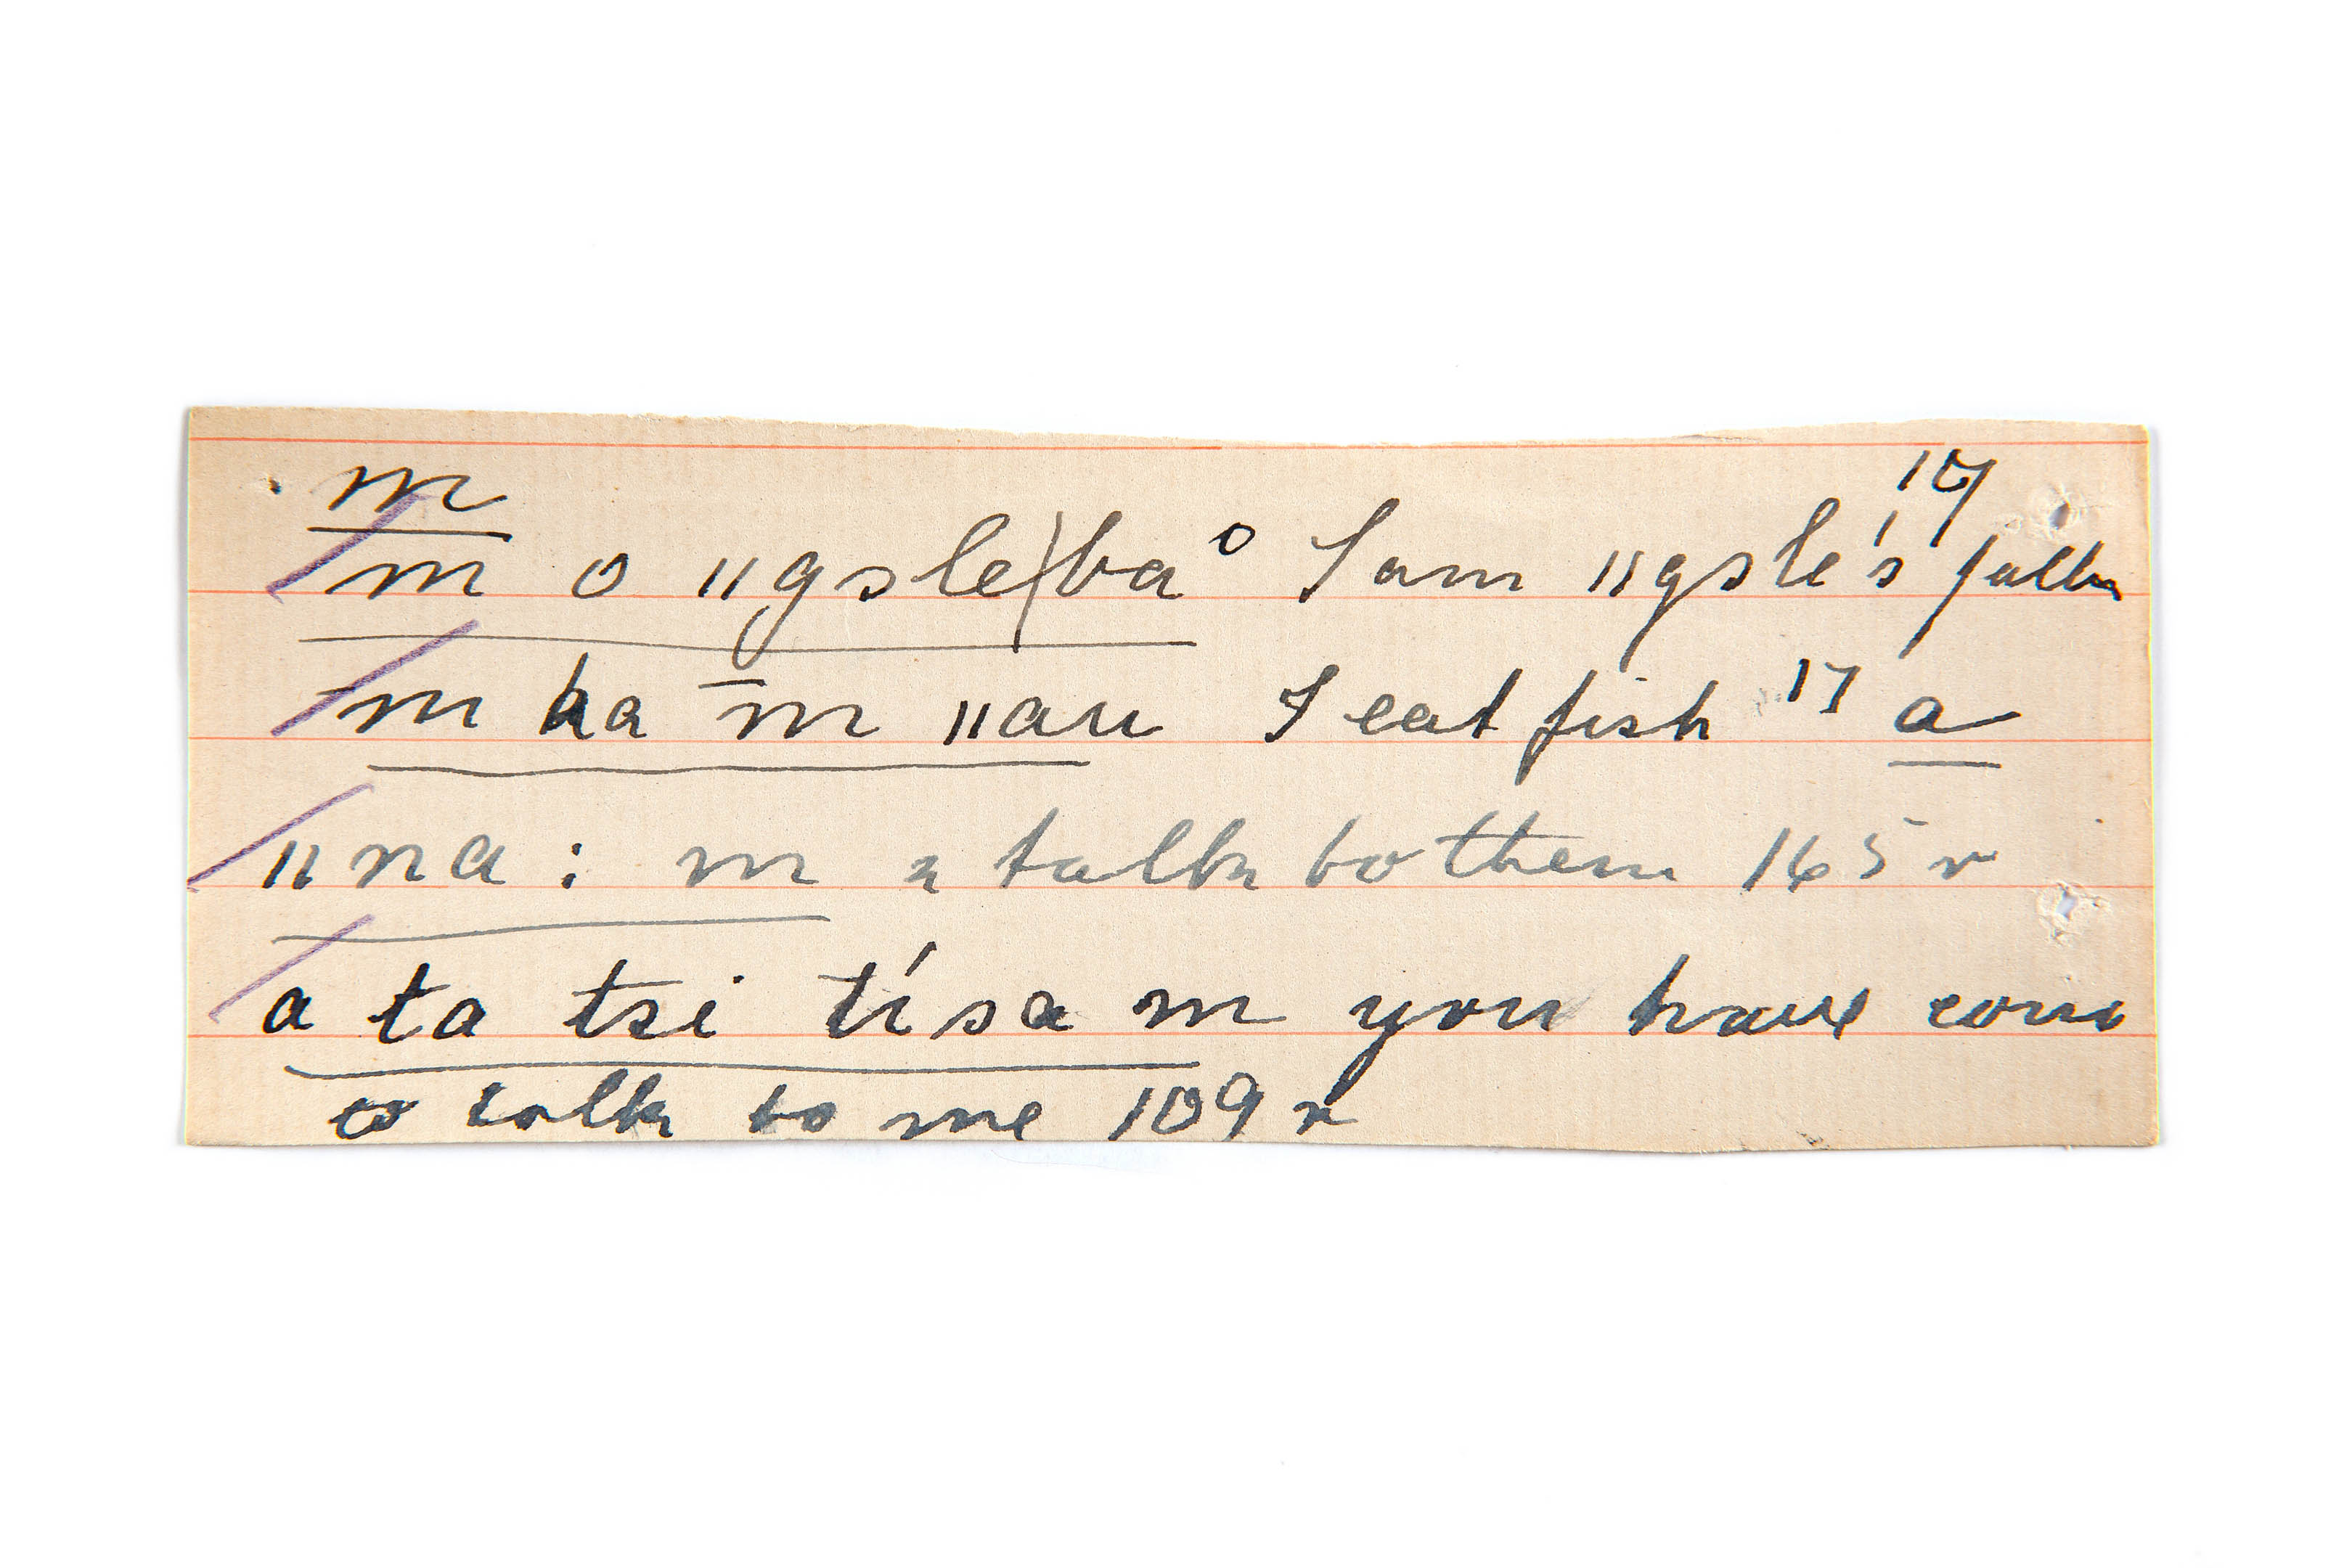 m
m o ǁgsle|ba° I am ǁgsle's father 17
m ha m̄ ǁau I eat fish 17 a
ǁna : m talk to them 165 v
a ta tsi tísa m you have come
to talk to me 109 v